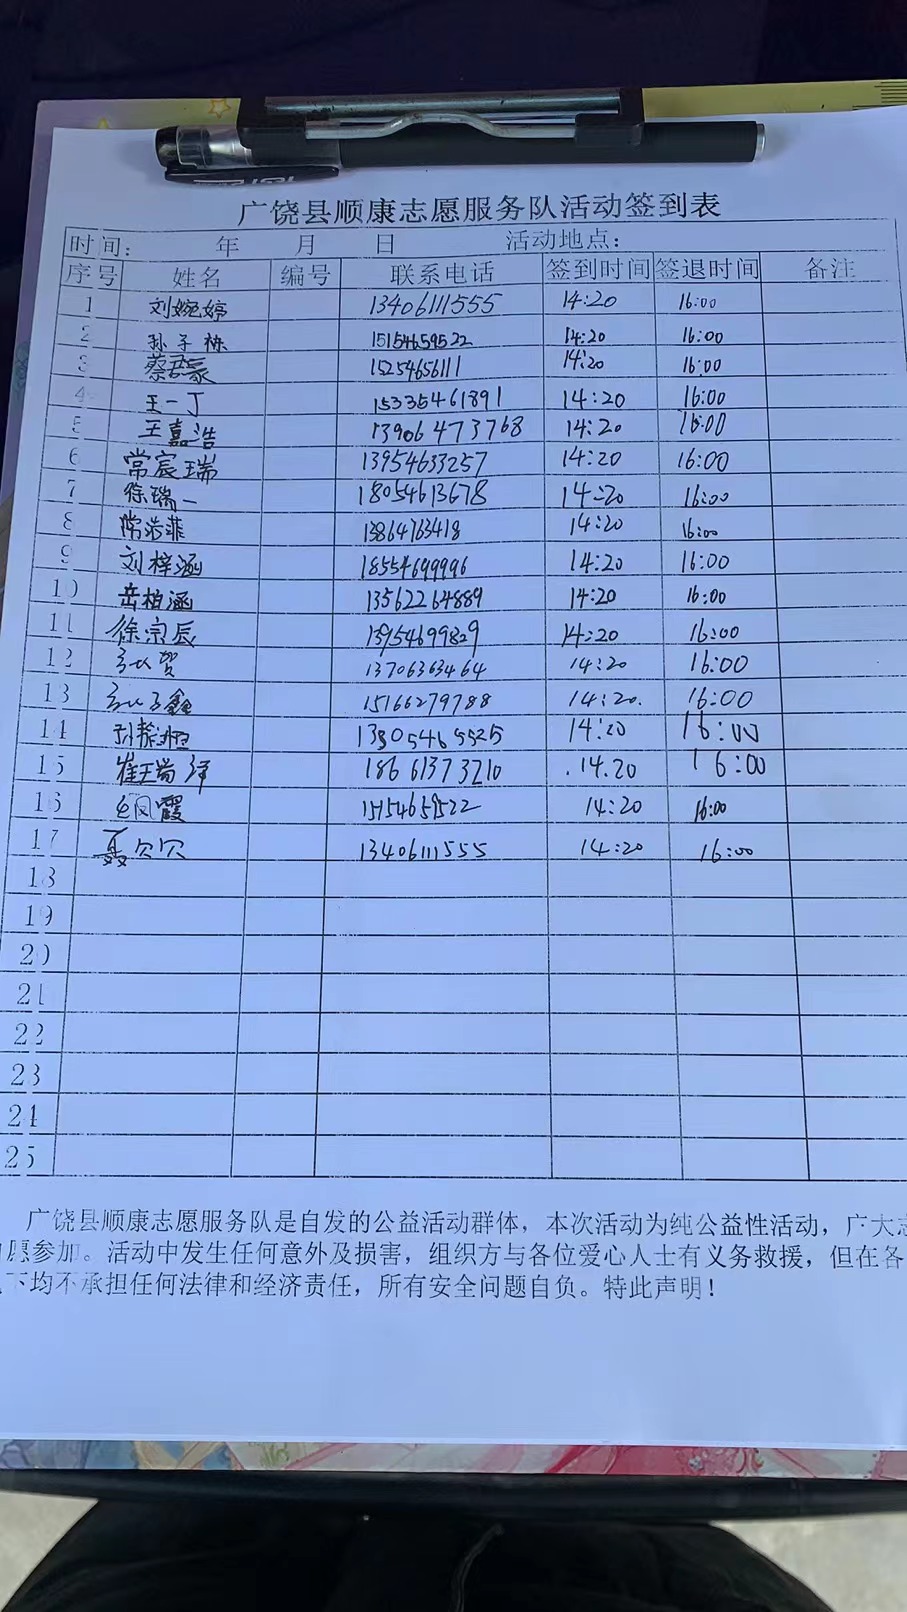 广饶县顺康志愿服务队活动签到表
时间: 年 月 日 活动地点:
序号 姓名 编号 联系电话 签到时间 签退时间 备注
1 刘婉婷 13406111555 14:20 16:00
2 孙子栋 15154659522 14:20 16:00
3 蔡君豪 15254656111 14:20 16:00
4 王一丁 15335461891 14:20 16:00
5 王嘉浩 13906473768 14:20 16:00
6 常宸瑞 13954633257 14:20 16:00
7 徐瑞一 18054613678 14:20 16:00
8 常浩菲 13864763418 14:20 16:00
9 刘梓涵 18554699996 14:20 16:00
10 岳柏涵 13562264889 14:20 16:00
11 徐宗辰 13954699829 14:20 16:00
12 13706363464 14:20 16:00
13 15166279788 14:20. 16:00
14 13805465525 14:20 16:00
15 崔王瑞泽 18661373210 .14.20 16:00
16 15154659522 14:20 16:00
17 聂贝贝 13406111555 14:20 16:00
18
19
20
21
22
23
24
25
广饶县顺康志愿服务队是自发的公益活动群体，本次活动为纯公益性活动，广大志
愿参加。活动中发生任何意外及损害，组织方与各位爱心人士有义务救援，但在各
下均不承担任何法律和经济责任，所有安全问题自负。特此声明！